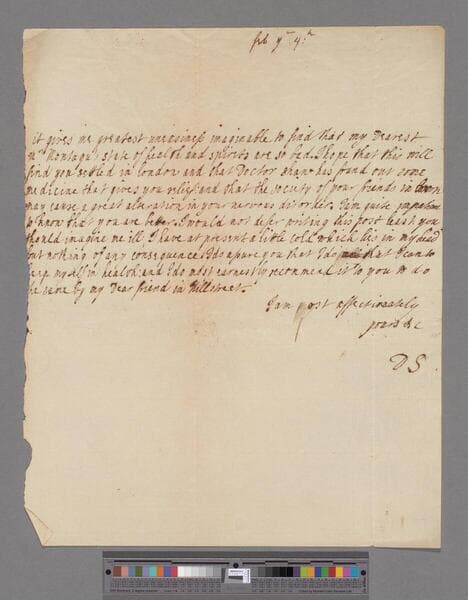 feb ye 4th
it gives me greatest uneasiness imaginable to find that my Dearest
Mrs Montagu's state of health and spirits are so bad. I hope that this will
find you setled in London and that Doctor Shan has found out some
medicine that gives you relief and that the society of your friends in town
may cause a great alteration in your nervous disorder. I am quite impatient
to know that you are better. I would not defer writing this post least you
should imagine me ill I have at present a little cold which lies in my head
but nothing of any consequence. I do assure you that I do all that I can to
keep my self in health and I do most earnestly recommend it to you to do
the same by my Dear friend in Hillstreet.
I am most affectionately
yours &c
D S